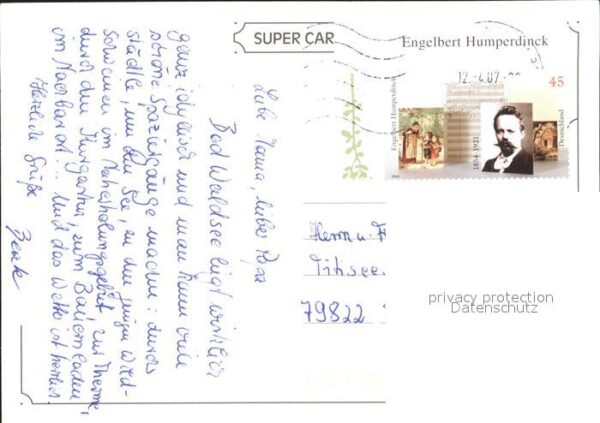 SUPER CAR
Engelbert Humperdinck
12.-4.07
45
Engelbert Humperdinck
1854-1921
Deutschland
Liebe Mama, lieber Papa
Bad Waldsee liegt wirklich
ganz idyllisch und man kann viele
schöne Spaziergänge machen: durchs
Städtle, um den See, zu den jungen Wild-
schweinen im Naherholungsgebiet, zur Therme,
durch den Kurgarten, zum Bauernladen
im Nachbarort!... Und das Wetter ist herrlich.
Herzliche Grüße
Herrn u. F
Titisee
79822
privacy protection
Datenschutz